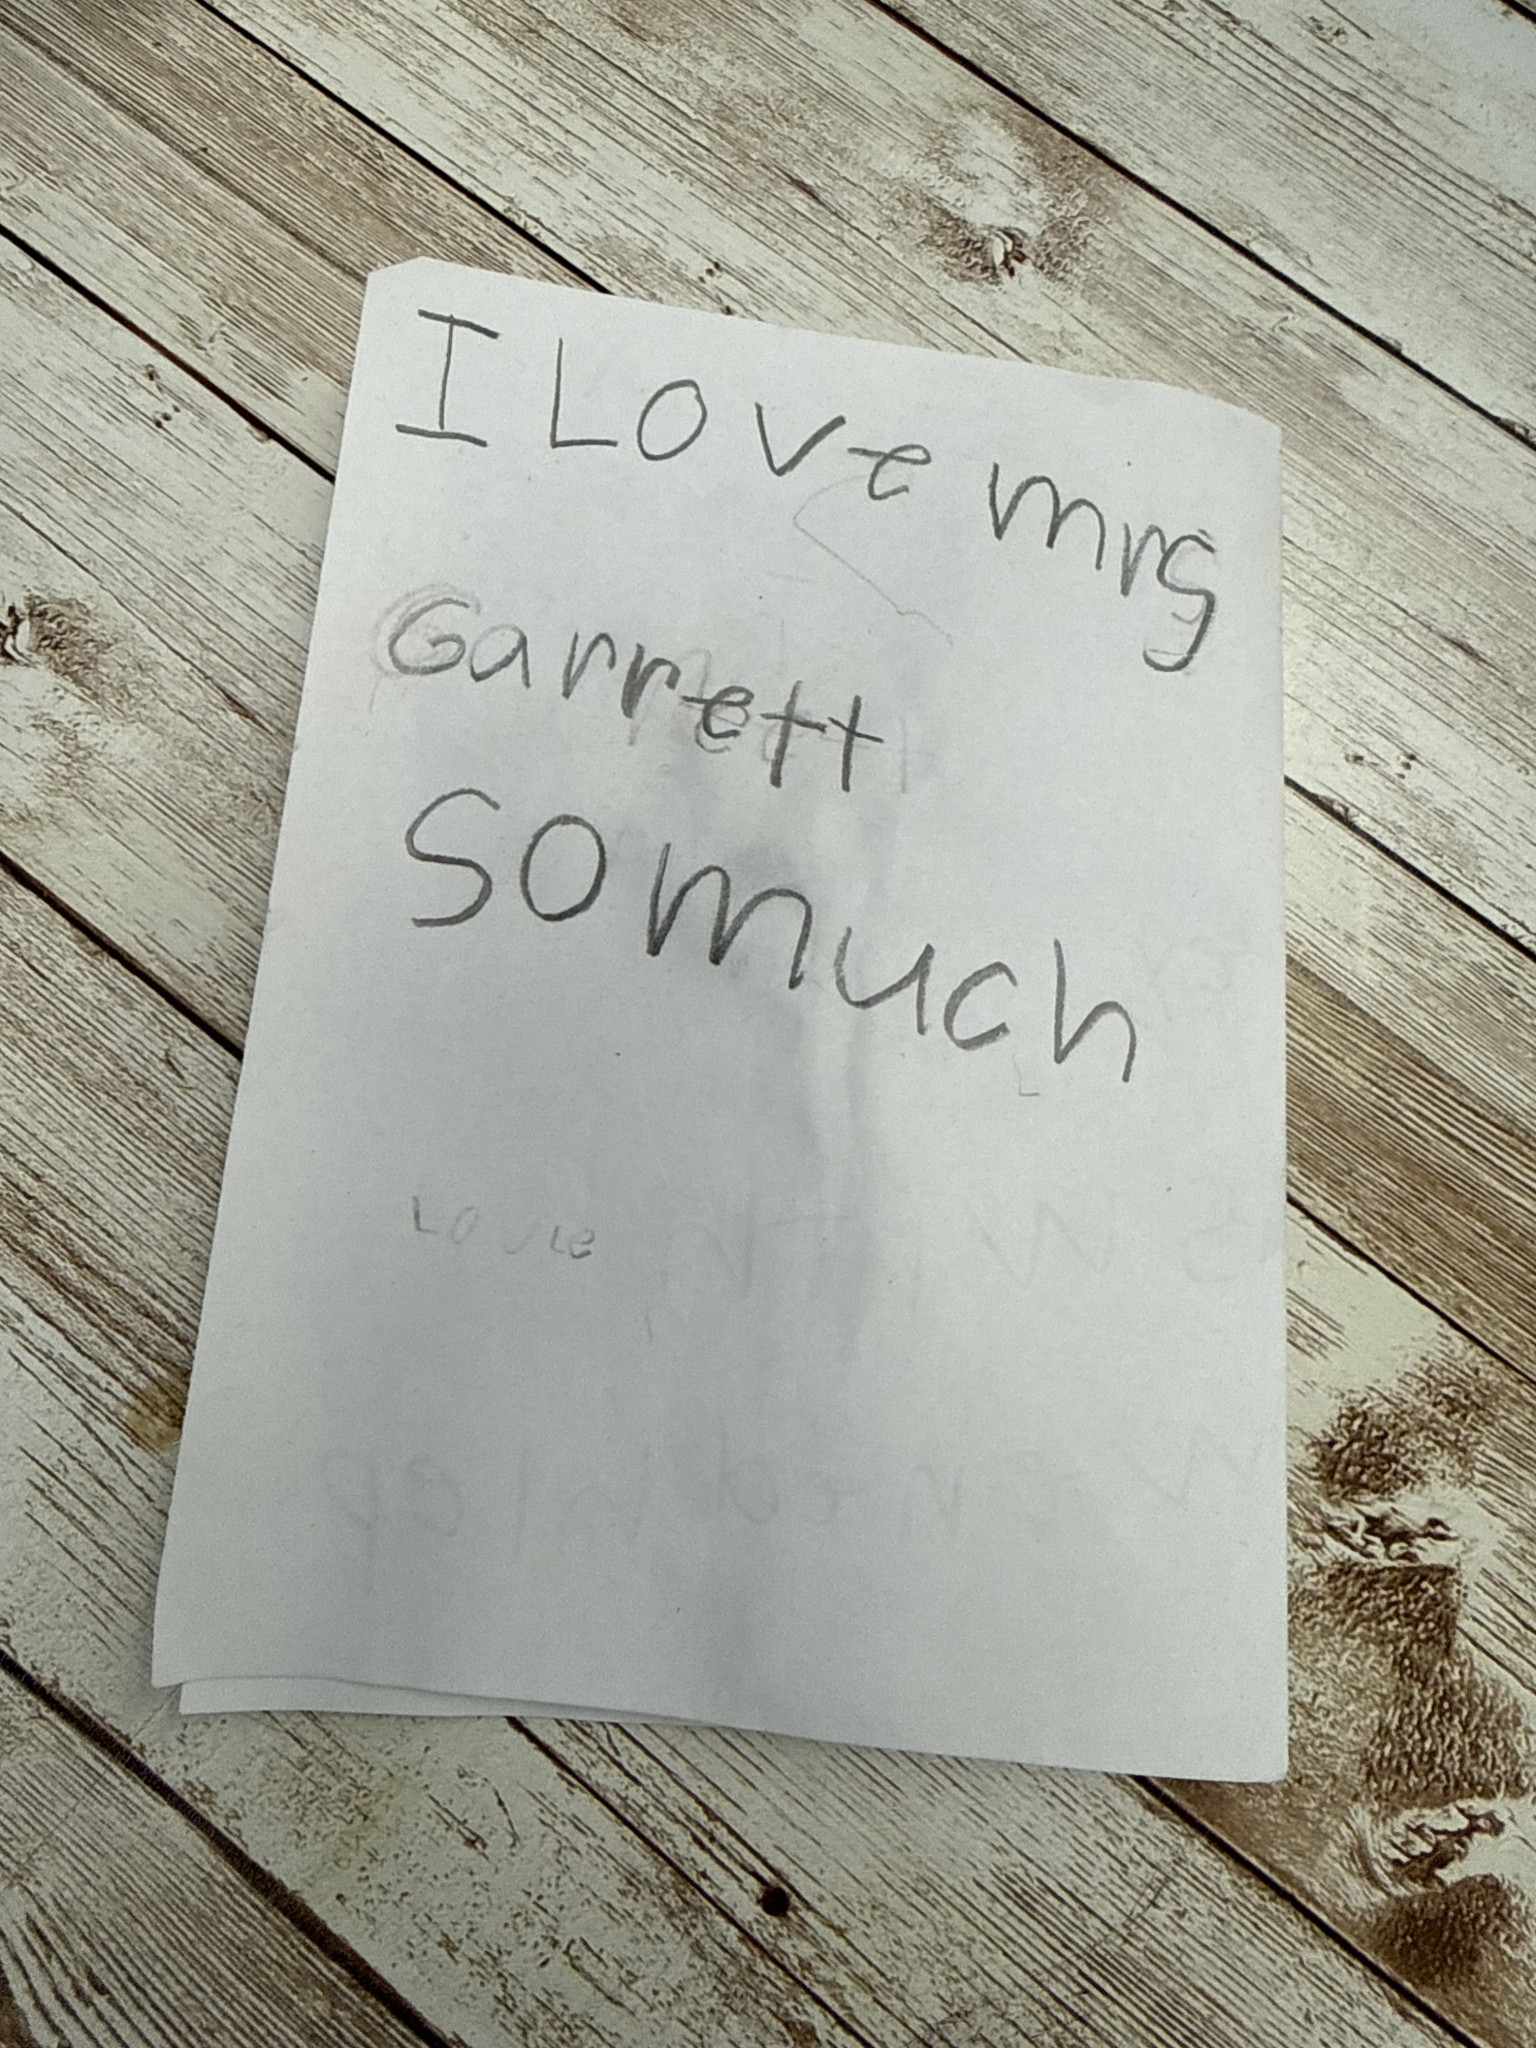 I Love mrs
Garrett
so much
Love